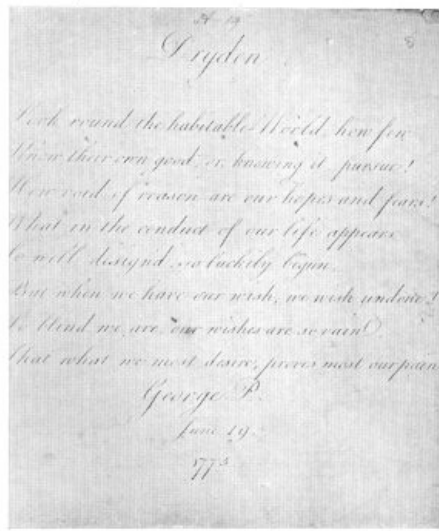 Dryden
Look round the habitable World, how few
Know their own good, or knowing it pursue!
How void of reason are our hopes and fears!
What in the conduct of our life appears
So well disign'd, so luckily begun,
But when we have our wish, we wish undone!
So blind we are, our wishes are so vain
That what we most desire, proves most our pain
George P.
June 19.
1775